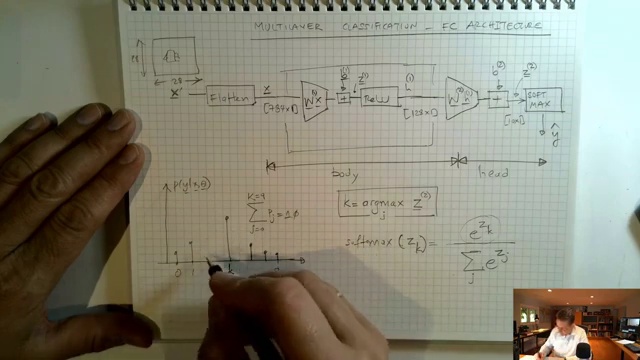 MULTILAYER CLASSIFICATION _ FC ARCHITECTURE
28
28
x' Flatten x [787x1] W⁽¹⁾x b⁽¹⁾ + z⁽¹⁾ ReLU h⁽¹⁾ [128x1] W⁽²⁾h⁽¹⁾ b⁽²⁾ + z⁽²⁾ [10x1] SOFT MAX
ŷ
body head
p(y|x,θ) K=9 Σ j=0 ŷj = 1.0
K = argmax j z⁽²⁾
softmax (zk) = e^zk / Σj e^zj
0 1